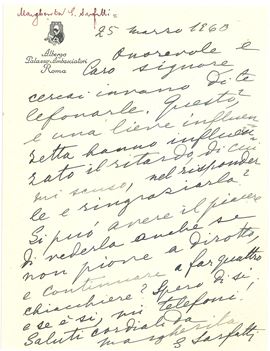 Margherita G. Sarfatti =
Albergo
Palazzo-Ambasciatori
Roma
25 marzo 1960
Onorevole e
Caro signore
cercai invano di te
lefonarle. Questo,
e una lieve influen
zetta hanno influen
zato il ritardo di cui
mi scuso, nel risponder
le e ringraziarla.
Si può avere il piacere
di vederla anche se
non piove a dirotto,
e continuare a far quattro
chiacchiere? Spero di sì
e se è sì, mi telefoni!
Saluti cordiali da
Margherita
G Sarfatti